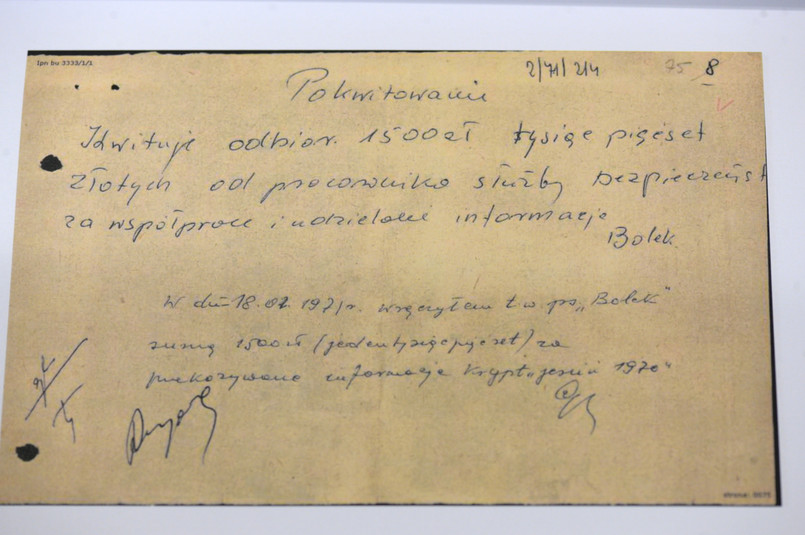 Ipn bu 3333/1/1
2/71/214 75 8
Pokwitowanie
Kwituję odbiór. 1500 zł tysiąc pięćset
złotych od pracownika służby bezpieczeńst
za współprace i udzielanie informacje
Bolek
W dniu 18.01.1971r. wręczyłem t.w. ps. „Bolek"
sumę 1500 zł (jeden tysiąc pięćset) za
przekazywane informacje krypt. „jesień 1970"
strona: 0075